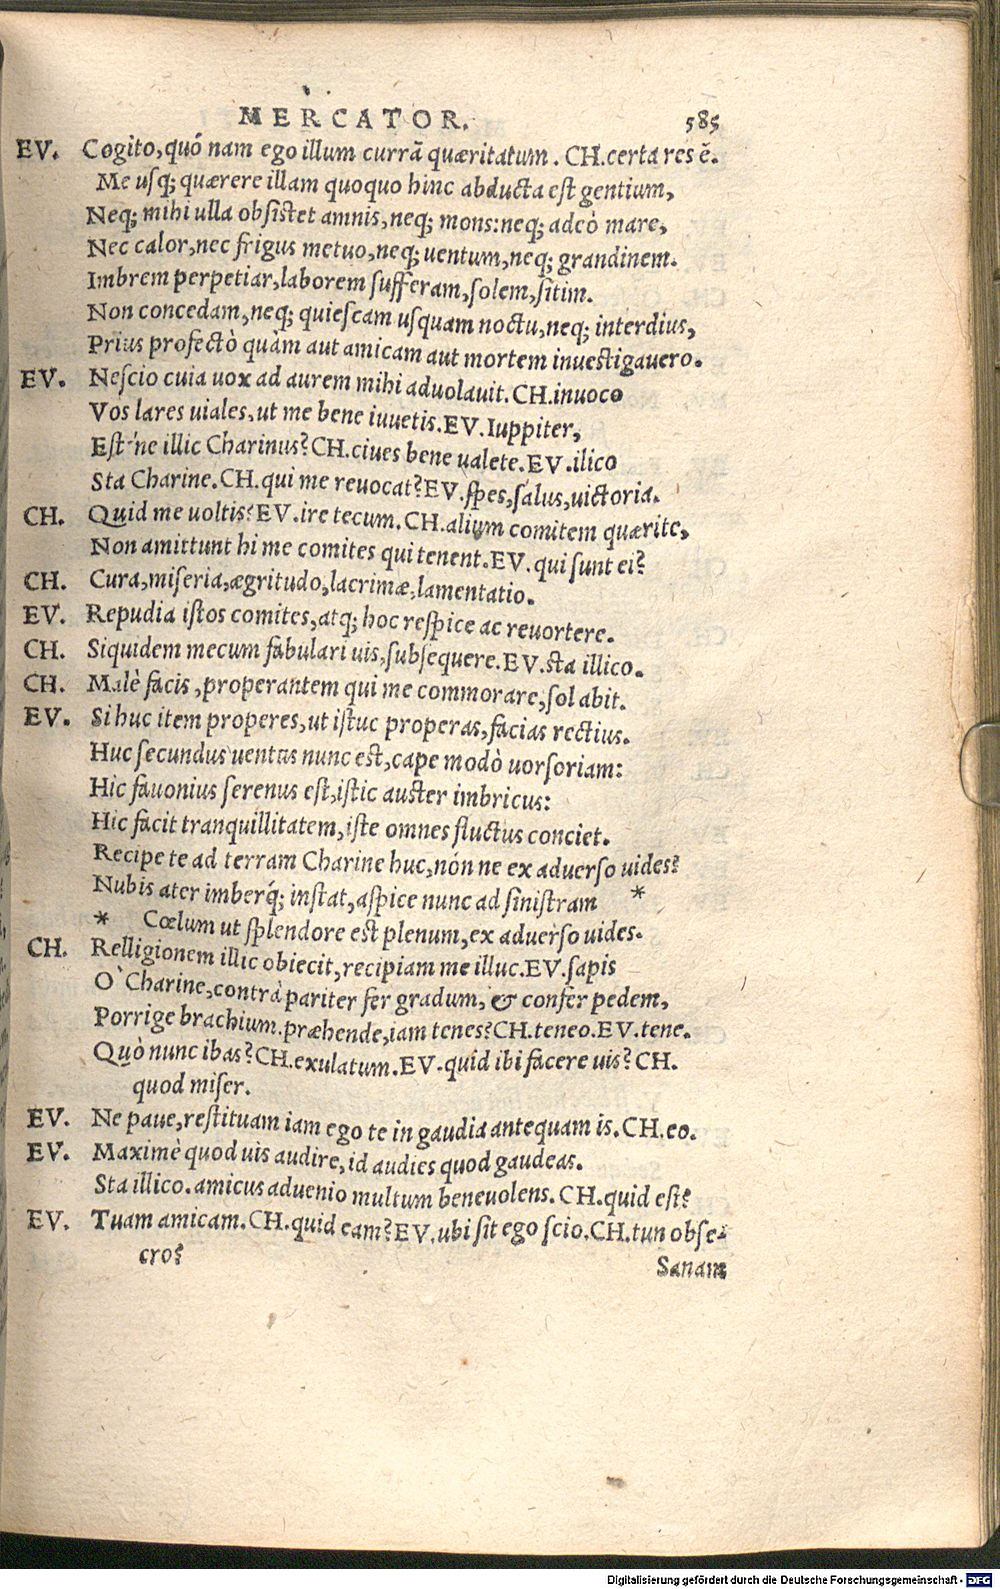 MERCATOR. 585
EV. Cogito, quó nam ego illum currã quæritatum. CH. certa res ẽ.
Me usq; quærere illam quoquo hinc abducta est gentium,
Neq; mihi ulla obsistet amnis, neq; mons: neq; adeò mare,
Nec calor, nec frigus metuo, neq; uentum, neq; grandinem.
Imbrem perpetiar, laborem sufferam, solem, sitim.
Non concedam, neq; quiescam usquam noctu, neq; interdius,
Prius profectò quàm aut amicam aut mortem inuestigauero.
EV. Nescio cuia uox ad aurem mihi aduolauit. CH. inuoco
Vos lares uiales, ut me bene iuuetis. EV. Iuppiter,
Est'ne illic Charinus? CH. ciues bene ualete. EV. ilico
Sta Charine. CH. qui me reuocat? EV. spes, salus, uictoria.
CH. Quid me uoltis? EV. ire tecum. CH. alium comitem quærite,
Non amittunt hi me comites qui tenent. EV. qui sunt ei?
CH. Cura, miseria, ægritudo, lacrimæ, lamentatio.
EV. Repudia istos comites, atq; hoc respice ac reuortere.
CH. Siquidem mecum fabulari uis, subsequere. EV. sta illico.
CH. Malè facis, properantem qui me commorare, sol abit.
EV. Si huc item properes, ut istuc properas, facias rectius.
Huc secundus uentus nunc est, cape modò uorsoriam:
Hic fauonius serenus est, istic auster imbricus:
Hic facit tranquillitatem, iste omnes fluctus conciet.
Recipe te ad terram Charine huc, nón ne ex aduerso uides?
Nubis ater imberq́; instat, aspice nunc ad sinistram *
* Cœlum ut splendore est plenum, ex aduerso uides.
CH. Relligionem illic obiecit, recipiam me illuc. EV. sapis
O' Charine, contrà pariter fer gradum, & confer pedem,
Porrige brachium. præhende, iam tenes? CH. teneo. EV. tene.
Quò nunc ibas? CH. exulatum. EV. quid ibi facere uis? CH.
quod miser.
EV. Ne paue, restituam iam ego te in gaudia antequam is. CH. eo.
EV. Maximè quod uis audire, id audies quod gaudeas.
Sta illico. amicus aduenio multum beneuolens. CH. quid est?
EV. Tuam amicam. CH. quid eam? EV. ubi sit ego scio. CH. tun obse-
cro?
Sanam
Digitalisierung gefördert durch die Deutsche Forschungsgemeinschaft - DFG